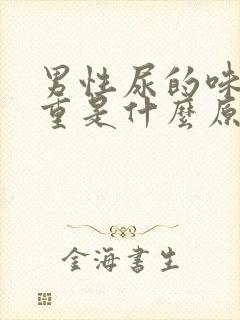 男性尿的味
重是什麼原
金海書生